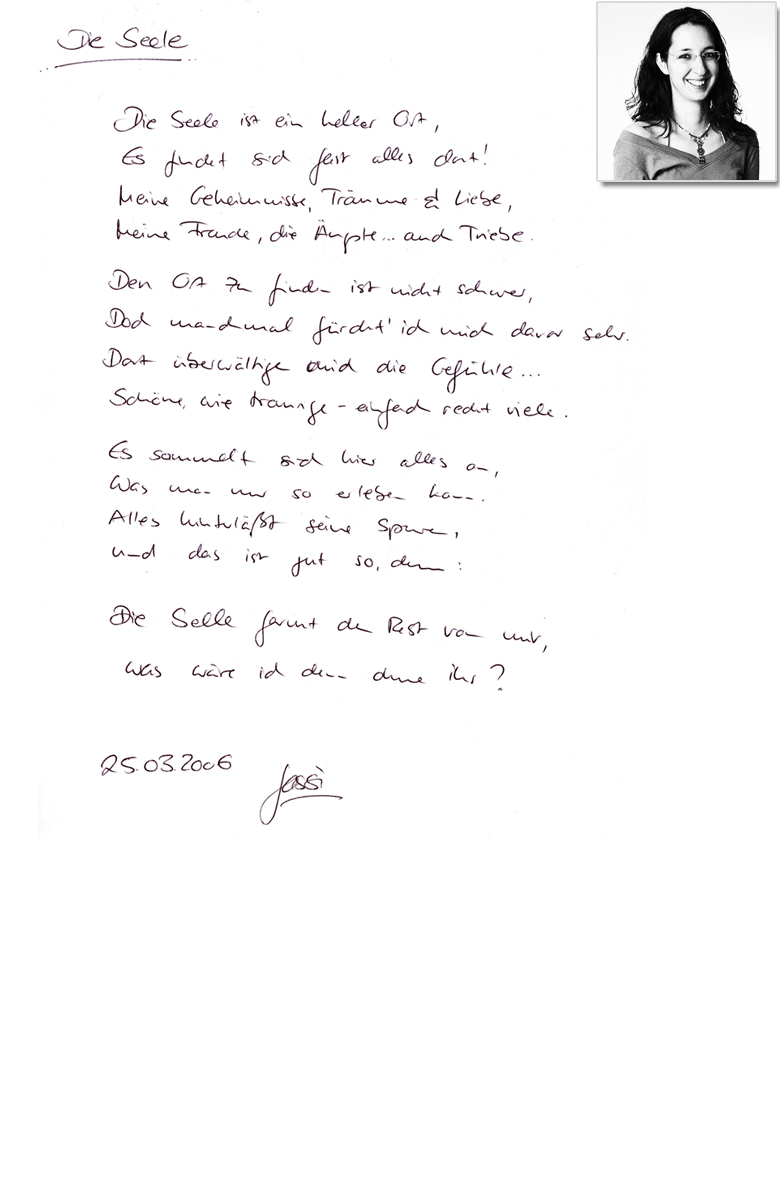 Die Seele
Die Seele ist ein heller Ort,
Es findet sich fast alles dort!
Meine Geheimnisse, Träume & Liebe,
Meine Freude, die Ängste... auch Triebe.
Den Ort zu finden ist nicht schwer,
Doch manchmal fürcht' ich mich davor sehr.
Dort überwältige mich die Gefühle...
Schöne, wie traurige - einfach recht viele.
Es sammelt sich hier alles an,
Was man nur so erleben kann.
Alles hinterläßt seine Spuren,
und das ist gut so, denn:
Die Selle formt den Rest von mir,
was wäre ich denn ohne ihr?
25.03.2006
Jessi